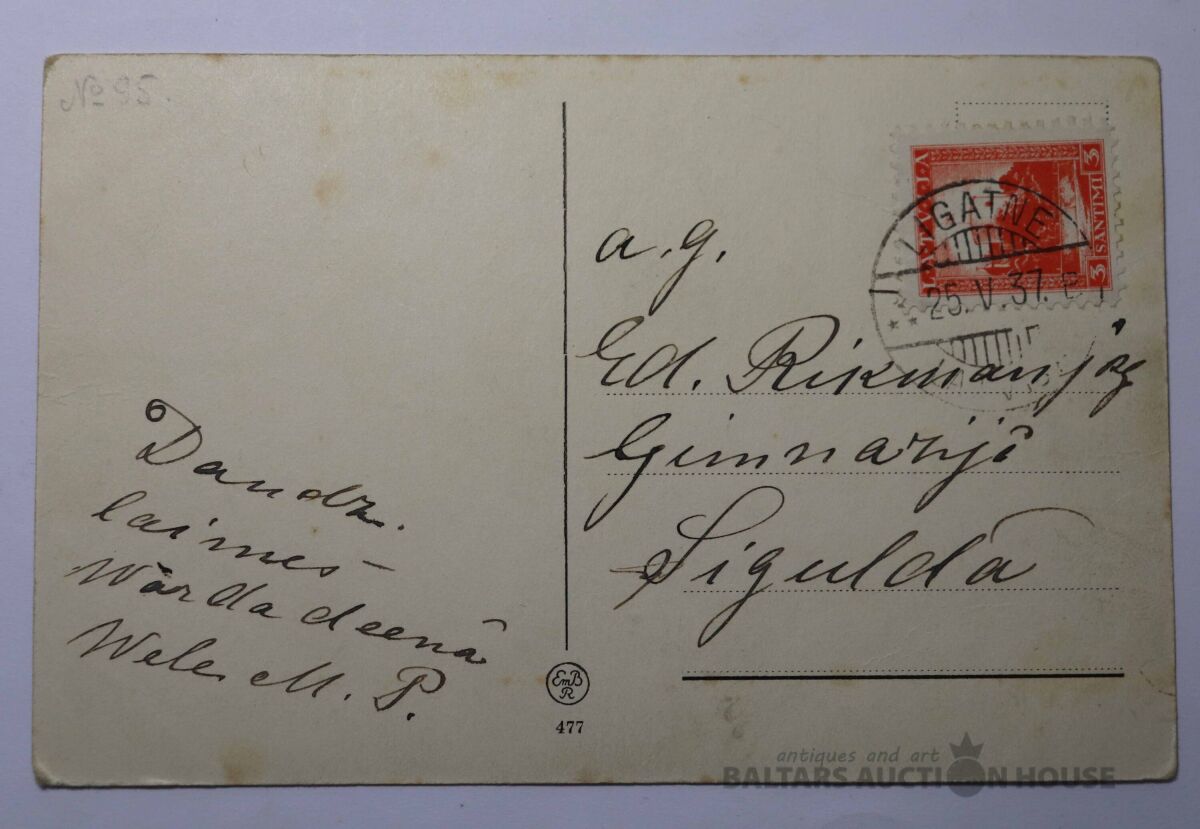 № 95.
LATVIJA
3 SANTIMI 3
LIGATNE
25.V.37.
a. g.
Ed. Rikmanj
Gimnazijā
Siguldā
Daudz
laimes –
Wārda deenā
Wele M. P.
EmB
R
477
antiques and art
BALTARS AUCTION HOUSE